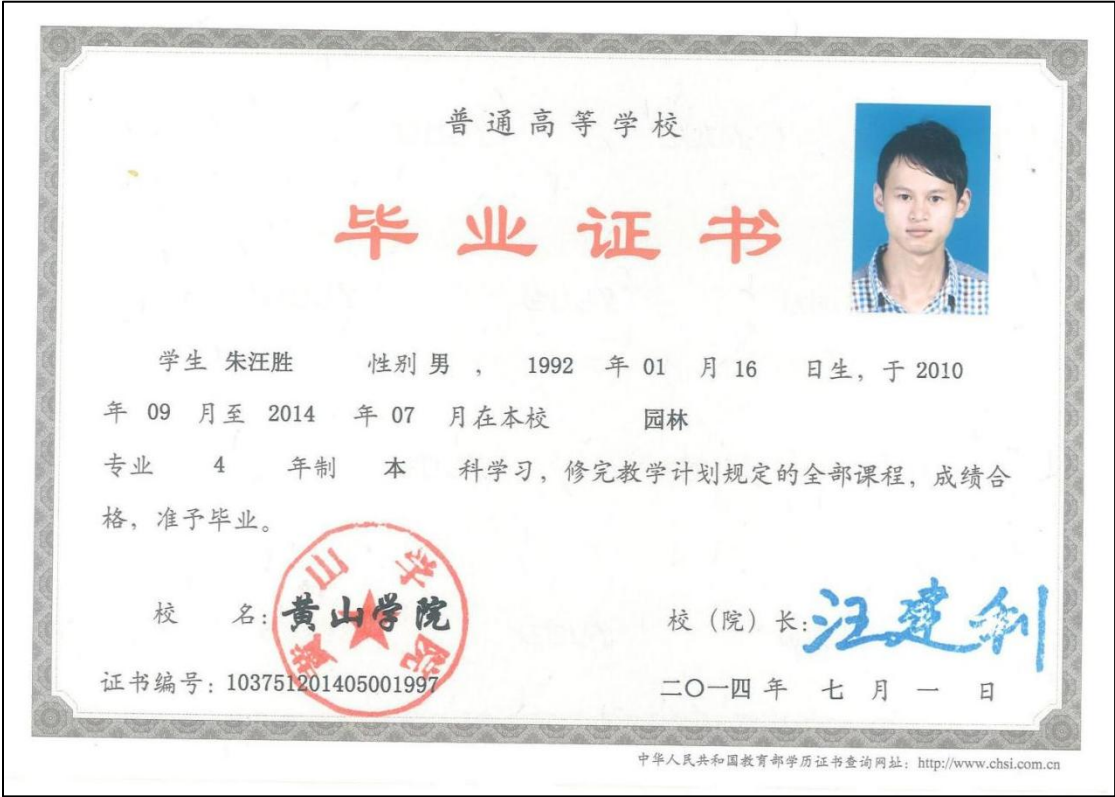 普通高等学校
毕业证书
学生 朱汪胜 性别 男 , 1992 年 01 月 16 日生, 于 2010
年 09 月至 2014 年 07 月在本校 园林
专业 4 年制 本 科学习, 修完教学计划规定的全部课程, 成绩合
格, 准予毕业。
黄山学院
校 名: 黄山学院
校 (院) 长: 汪建利
证书编号: 103751201405001997
二〇一四 年 七 月 一 日
中华人民共和国教育部学历证书查询网址: http://www.chsi.com.cn